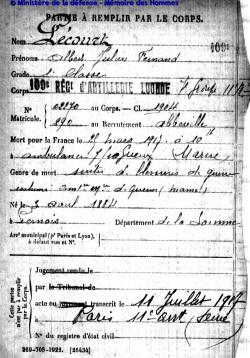 © Ministère de la défense - Mémoire des Hommes
PARTIE À REMPLIR PAR LE CORPS.
Nom Lécourt
Prénoms Albert Jules Fernand
Grade 2e classe
Corps 100e RÉGt D'ARTILLERIE LOURDE
N° 02270 au Corps. — Cl. 1904
Matricule. 890 au Recrutement Abbeville
Mort pour la France le 25 mars 1917 à 10h
à ambulance (Marne)
Genre de mort suites de blessures de guerre
Né le 3 août 1884
à Pernois Département de la Somme
Arr' municipal (pr Paris et Lyon),
à défaut rue et N°.
Cette partie n'est pas à remplir par le Corps.
Jugement rendu le
par le Tribunal de
acte ou jugement transcrit le 11 Juillet 1917
à Paris 11e arrt (Seine)
N° du registre d'état civil
269-708-1922. [26434]